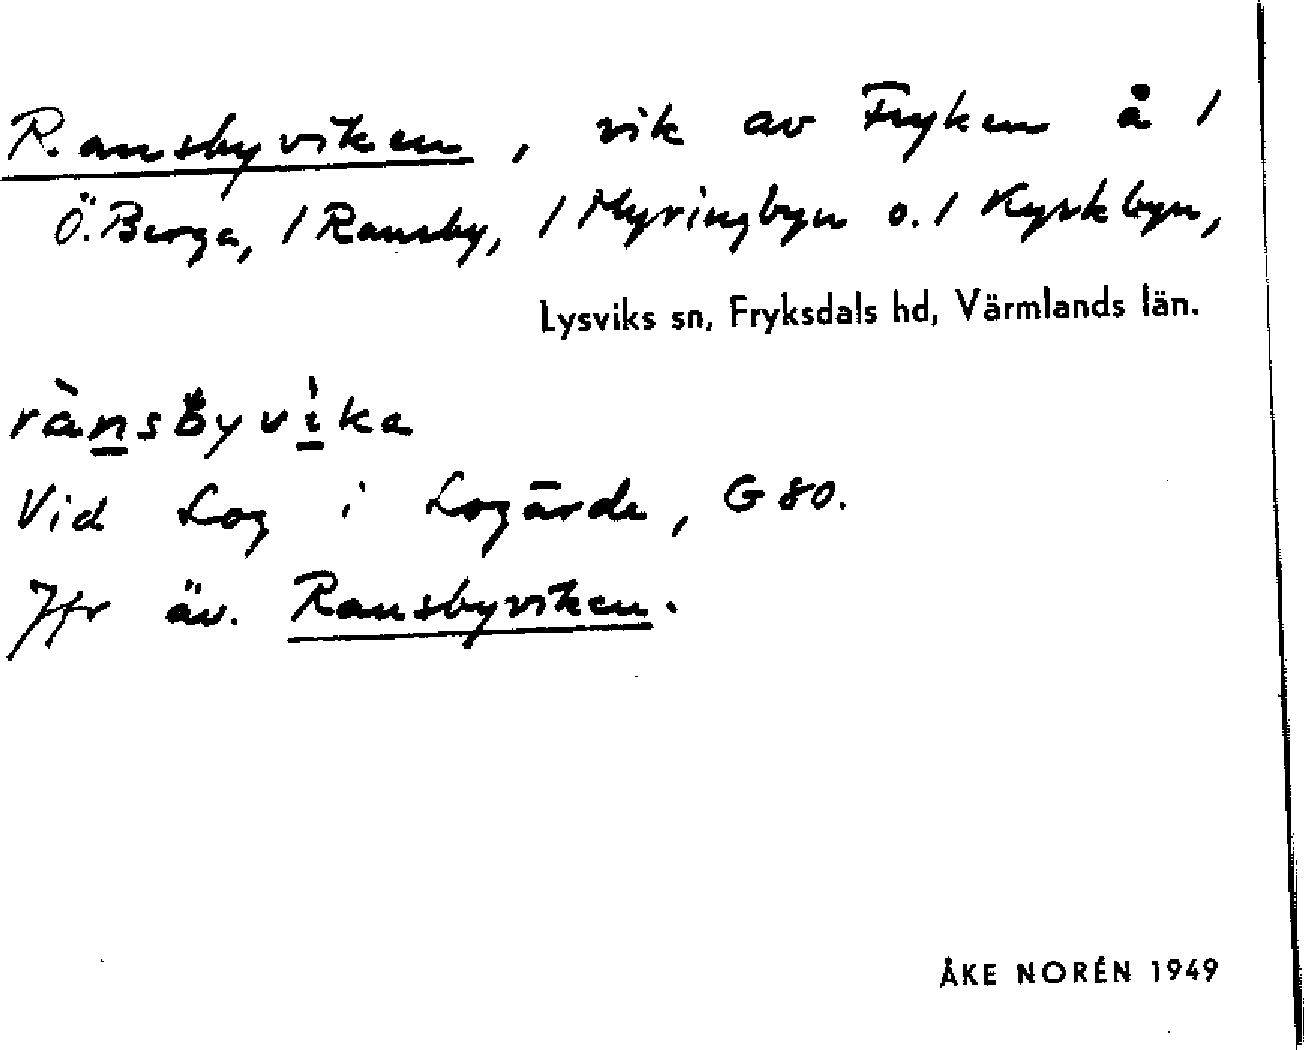 Ransbyviken, vik av Fryken å 1
Ö. Berga, 1 Ransby, 1 Myringbyn o. 1 Kyrkbyn,
Lysviks sn, Fryksdals hd, Värmlands län.
rànsbyvika
Vid Log i Logärde, G 80.
Jfr äv. Ransbyviken.
ÅKE NORÉN 1949